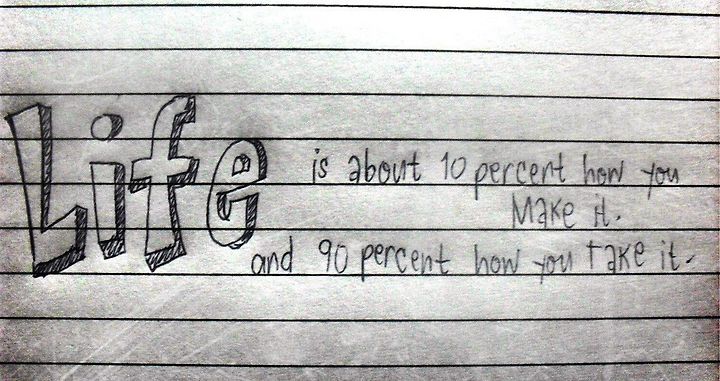 Life is about 10 percent how you
Make it.
and 90 percent how you take it.